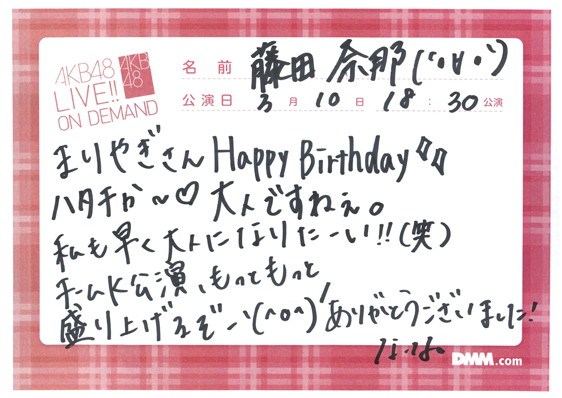 AKB48
LIVE!!
ON DEMAND
AKB
48
名前 藤田奈那(°∀°)
公演日 3月10日 18:30公演
まりやぎさん Happy Birthday
ハタチか〜♡大人ですねぇ。
私も早く大人になりたーい!!(笑)
チームK公演、もっともっと
盛り上げるぞー\(^o^)/ありがとうございました!
DMM.com